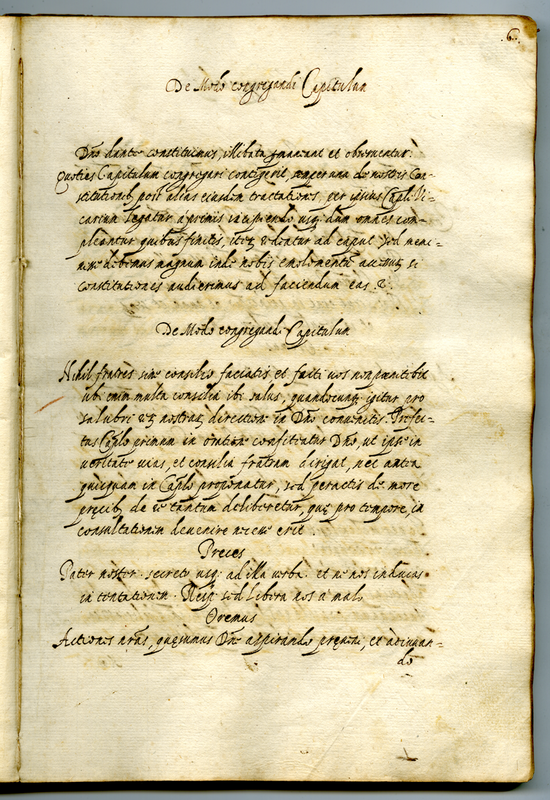 6.
De Modo congregandi Capitulum
Dño dante constituimus, illibata maneant et obseruentur.
Quoties Capitulum congregari contigerit, de nostris Con-
stitutionib, post alias eiusdem tractationes, per ipsius Caplj Vi-
carium legatur à primis incipiendo usq; dum omnes com-
pleantur quibus finitis, iterũ redeatur ad caput, sed memi-
nisse debemus magnum inde nobis emolumentũ si
constitutiones audierimus ad faciendum eas &.
De Modo congregandi Capitulum
Nihil fratres sine consilio faciatis et facti uos non pœnitebit
ubi enim multa consilia ibi salus, quandocunq; igitur pro
salubri rerũ nostrarũ directione in Dño conuenitis. Prefec-
tus Caplo primum in oratione confiteatur Dño, ut ipse in
ueritate uias, et consilia fratrum dirigat, nec antea
quicquam in Caplo proponatur, sed peractis de more
precib, de re tantum deliberetur, quę pro tempore, in
consultationem deuenire necesse erit.
Preces
Pater noster. secreto usq; ad illa uerba. et ne nos inducas
in tentationem. Resp. sed libera nos a malo
Oremus
Actiones nr̃as, quęsumus Dñe aspirando pręueni, et adiuuan-
do